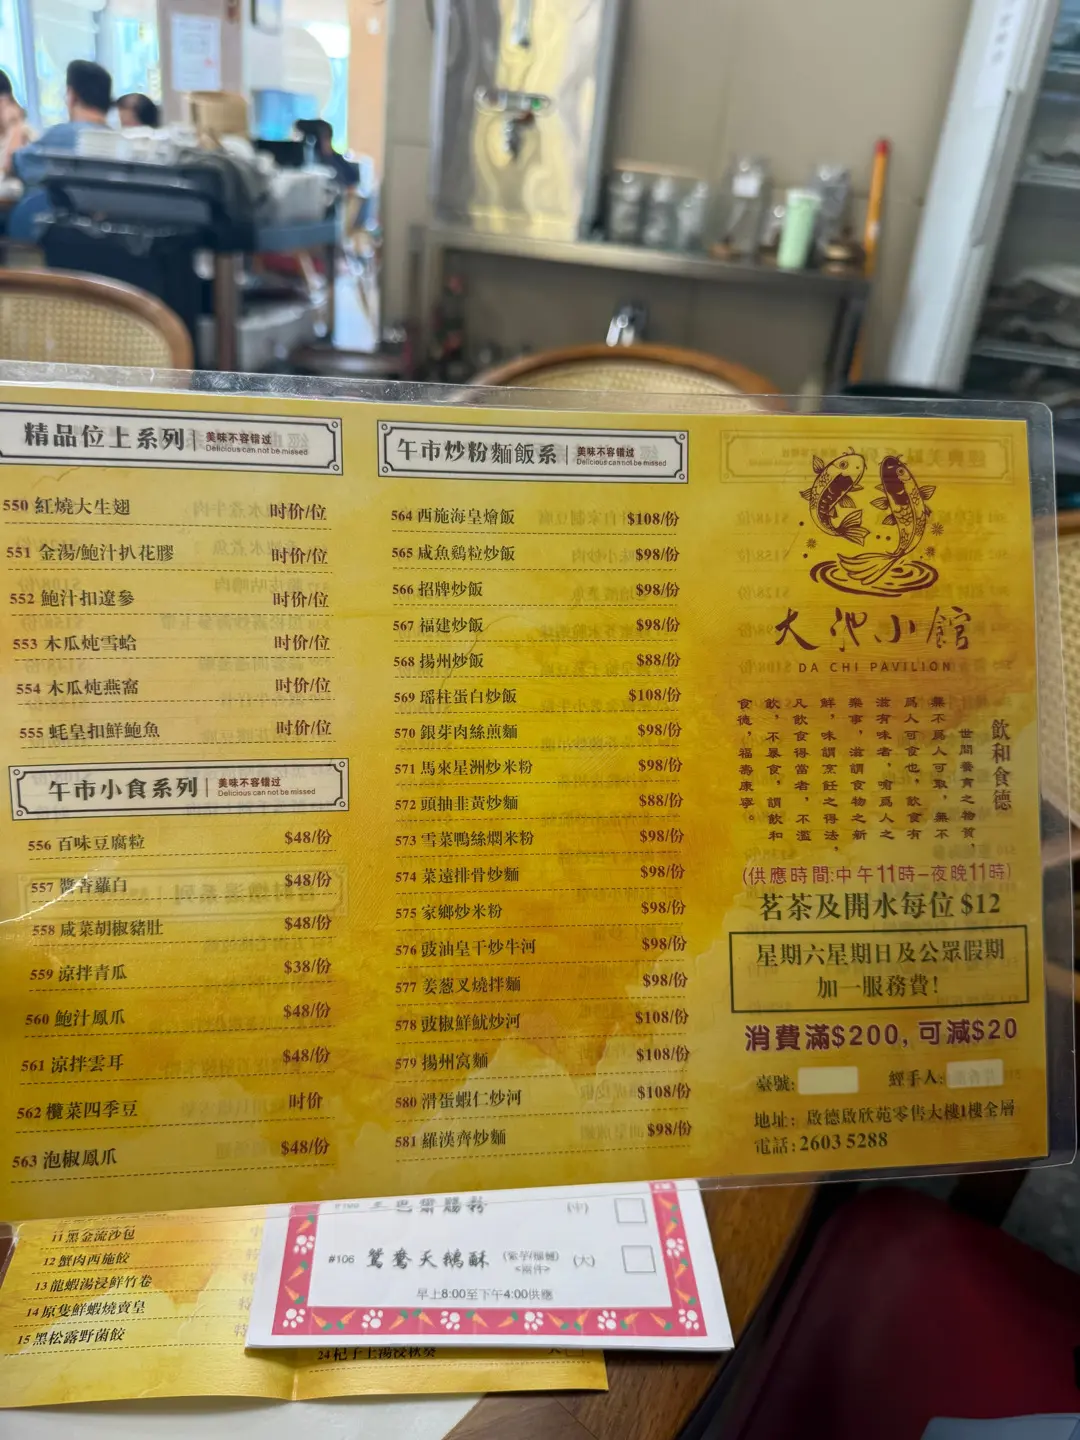 精品位上系列
美味不容错过
Delicious can not be missed
550 紅燒大生翅 时价/位
551 金湯/鮑汁扒花膠 时价/位
552 鮑汁扣遼參 时价/位
553 木瓜炖雪蛤 时价/位
554 木瓜炖燕窩 时价/位
555 蚝皇扣鮮鮑魚 时价/位
午市小食系列
美味不容错过
Delicious can not be missed
556 百味豆腐粒 $48/份
557 醬香蘿白 $48/份
558 咸菜胡椒豬肚 $48/份
559 涼拌青瓜 $38/份
560 鮑汁鳳爪 $48/份
561 涼拌雲耳 $48/份
562 欖菜四季豆 时价
563 泡椒鳳爪 $48/份
午市炒粉麵飯系
美味不容错过
Delicious can not be missed
564 西施海皇燴飯 $108/份
565 咸魚鷄粒炒飯 $98/份
566 招牌炒飯 $98/份
567 福建炒飯 $98/份
568 揚州炒飯 $88/份
569 瑶柱蛋白炒飯 $108/份
570 銀芽肉絲煎麵 $98/份
571 馬來星洲炒米粉 $98/份
572 頭抽韭黃炒麵 $88/份
573 雪菜鴨絲燜米粉 $98/份
574 菜遠排骨炒麵 $98/份
575 家鄉炒米粉 $98/份
576 豉油皇干炒牛河 $98/份
577 姜葱叉燒拌麵 $98/份
578 豉椒鮮魷炒河 $108/份
579 揚州窝麵 $108/份
580 滑蛋蝦仁炒河 $108/份
581 羅漢齊炒麵 $98/份
大池小館
DA CHI PAVILION
飲和食德
世間養育之物質，
無不爲人可取，無不
爲人可食也，飲食有
滋有味者，喻爲人之
樂事，滋謂食物之新
鮮，味謂烹飪之得法，
凡飲食得當者，不濫
飲，不暴食，謂飲和
食德，福壽康寧。
(供應時間:中午11時–夜晚11時)
茗茶及開水每位 $12
星期六星期日及公眾假期
加一服務費!
消費滿$200, 可減$20
臺號:
經手人:
地址: 啟德啟欣苑零售大樓1樓全層
電話: 2603 5288
11 黑金流沙包
12 蟹肉西施餃
13 龍蝦湯浸鮮竹卷
14 原隻鮮蝦燒賣皇
15 黑松露野菌餃
(中)
#106 鴛鴦天鵝酥 (大)
早上8:00至下午4:00供應
24 杞子上湯浸秋葵